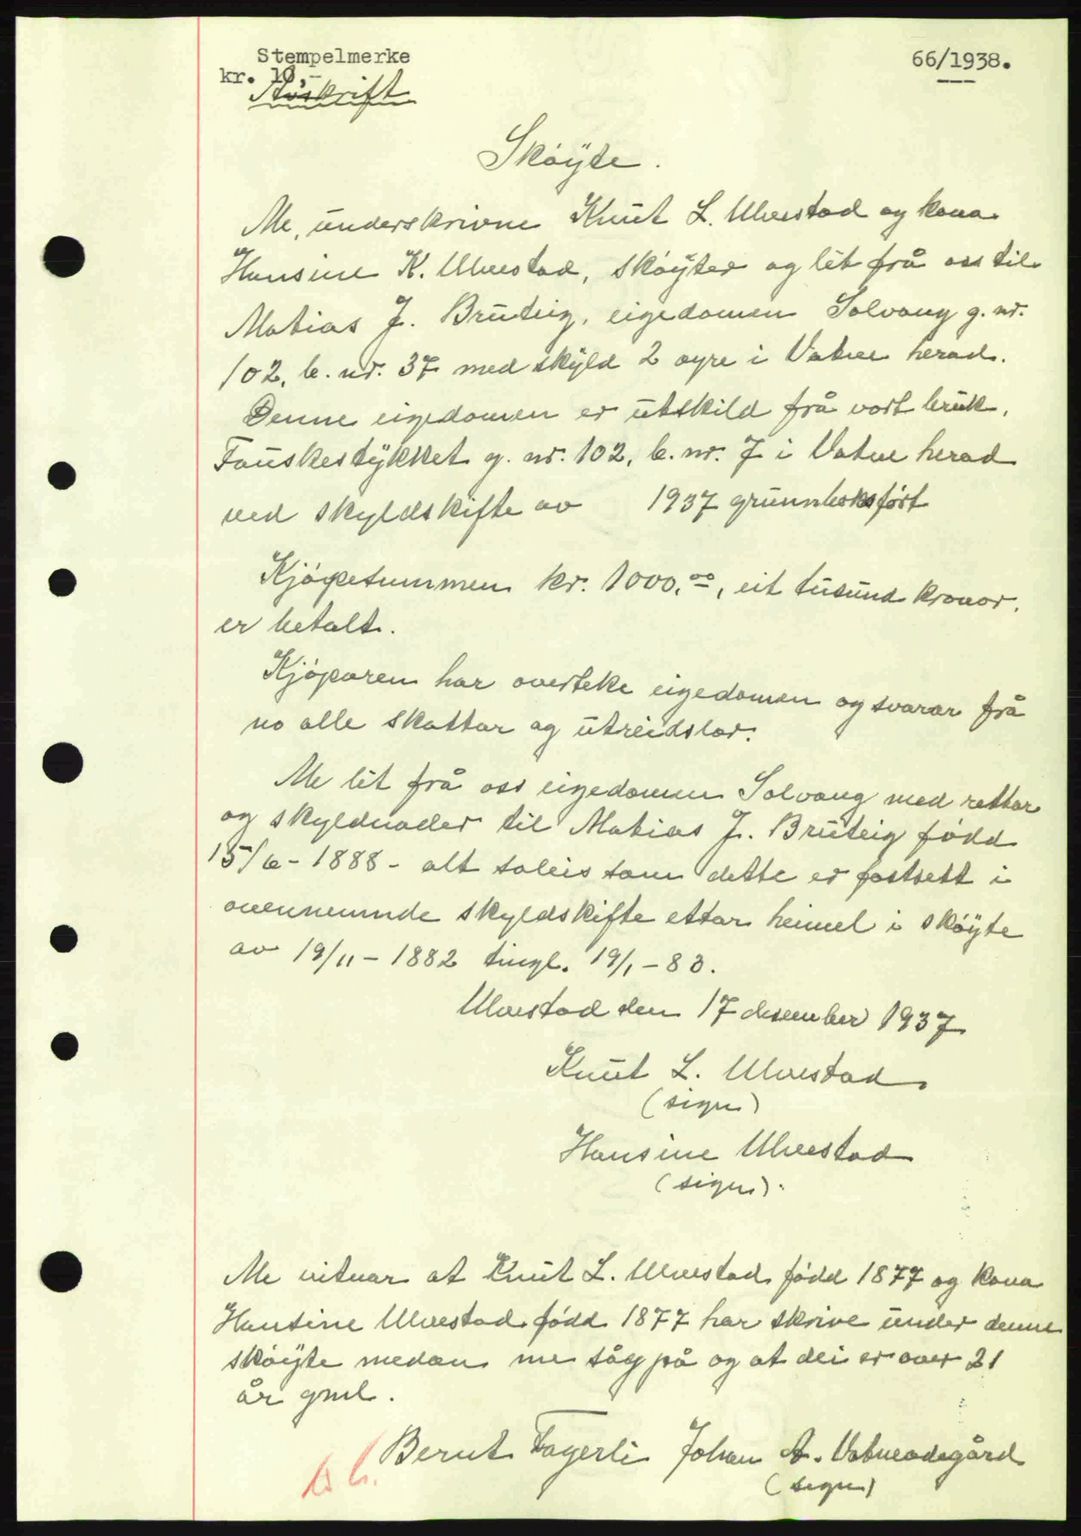 Stempelmerke
66/1938.
kr. 10,-
Avskrift
Skøÿte.
Me, underskrivne Knut L. Ulvestad og kona
Hansine K. Ulvestad, skøÿter og lèt frå oss til
Matias J. Bruteig, eigedomen Solvang g. nr.
102, b. nr. 37 med skÿld 2 øyre i Vatne herad.
Denne eigedomen er utskild frå vort bruk,
Fauskestÿkket g. nr. 102, b. nr. 7 i Vatne herad
ved skyldskifte av 1937 grunnboksført
Kjøpesummen kr. 1000,00, eit tusund kronor,
er betalt.
Kjøparen har overteke eigedomen og svarar frå
no alle skattar og utreidslor.
Me lèt frå oss eigedomen Solvang med rettar
og skyldnader til Matias J. Bruteig fødd
15/6 - 1888 - alt soleis som dette er fastsett i
ovennemnde skyldskifte ettar heimel i skøÿte
av 19/11 - 1882 tingl. 19/1 - 83.
Ulvestad den 17 desember 1937
Knut L. Ulvestad.
(sign)
Hansine Ulvestad
(sign).
Me vitnar at Knut L. Ulvestad fødd 1877 og kona
Hansine Ulvestad fødd 1877 har skrive under denne
skøÿte medan me såg på og at dei er over 21
år gml.
Bernt Fagerli Johan A. Vatneødegård
(sign)